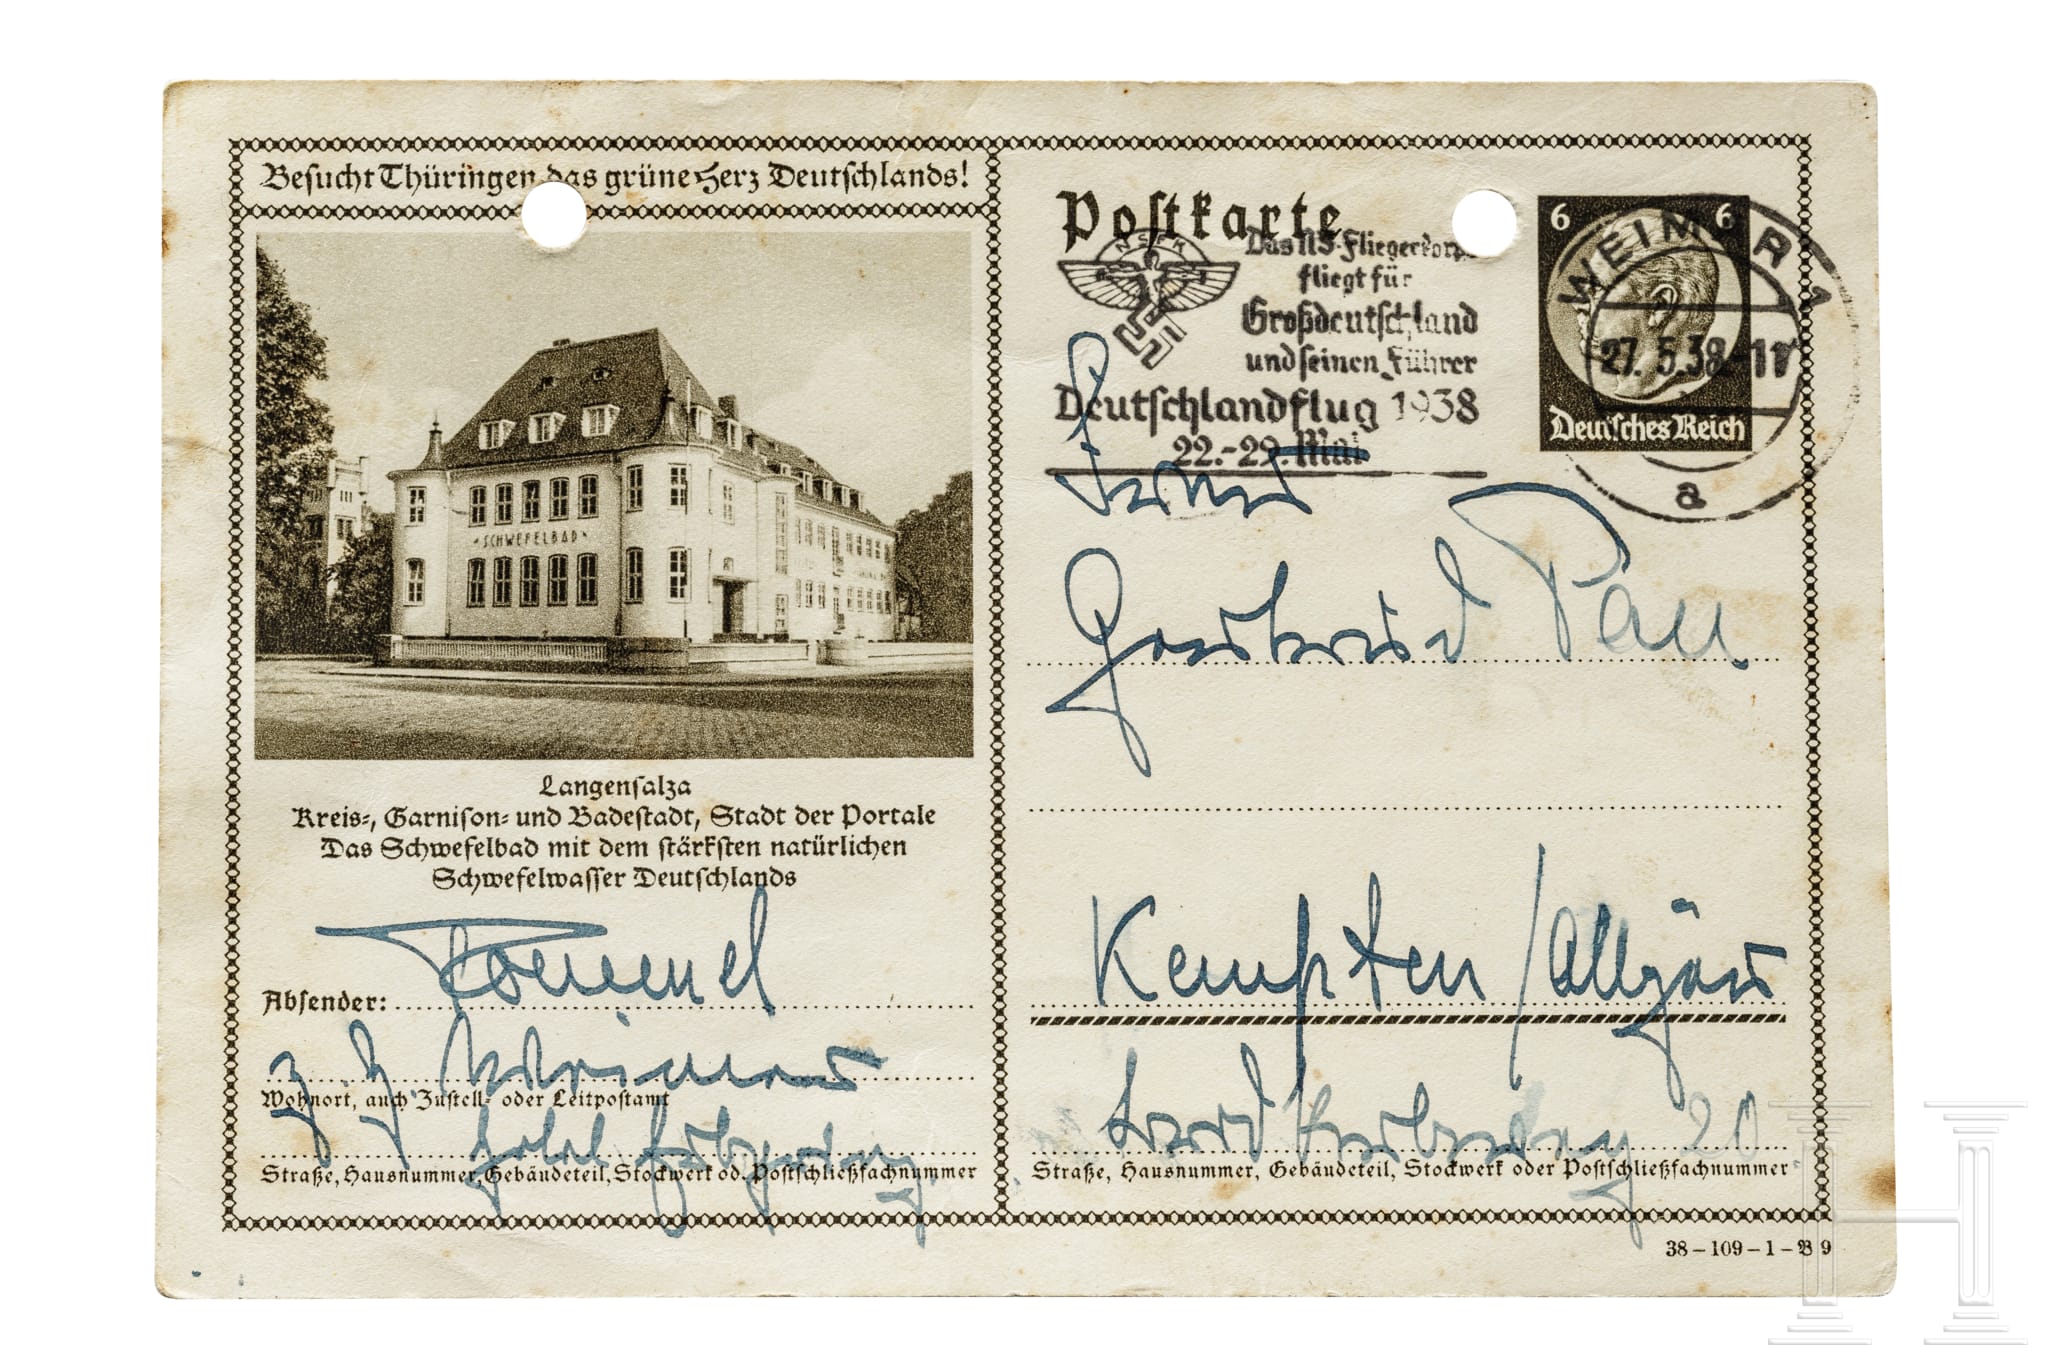 Besucht Thüringen das grüne Herz Deutschlands!
SCHWEFELBAD
Langensalza
Kreis-, Garnison- und Badestadt, Stadt der Portale
Das Schwefelbad mit dem stärksten natürlichen
Schwefelwasser Deutschlands
Absender: Rommel
z. Z. Weimar
Wohnort, auch Zustell- oder Leitpostamt
Hotel
Straße, Hausnummer, Gebäudeteil, Stockwerk od. Postschließfachnummer
Postkarte
NSFK
Das NS-Fliegerkorps
fliegt für
Großdeutschland
und seinen Führer
Deutschlandflug 1938
22.-29. Mai
6 6
Deutsches Reich
WEIMAR 1
27.5.38.-17
a
Gertrud Pan
Kempten / Allgäu
20
Straße, Hausnummer, Gebäudeteil, Stockwerk oder Postschließfachnummer
38-109-1-B9